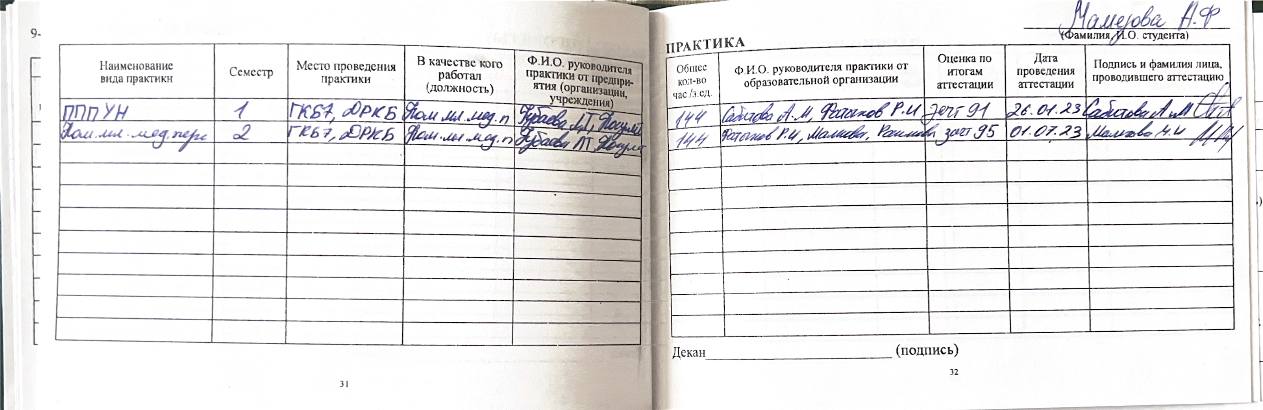 9-
Наименование вида практики
Семестр
Место проведения практики
В качестве кого работал (должность)
Ф.И.О. руководителя практики от предприятия (организации, учреждения)
ПППУН 1 ГКБ7, ДРКБ Пом.мл.мед.п
Пом.мл.мед.перс 2 ГКБ7, ДРКБ Пом.мл.мед.п
31
А.Ф
(Фамилия, И.О. студента)
ПРАКТИКА
Общее кол-во час./з.ед.
Ф.И.О. руководителя практики от образовательной организации
Оценка по итогам аттестации
Дата проведения аттестации
Подпись и фамилия лица, проводившего аттестацию
144 Сабитова А.М, Р.И зачт 91 26.01.23 Сабитова А.М
144 Р.И, зачт 95 01.07.23
Декан (подпись)
32